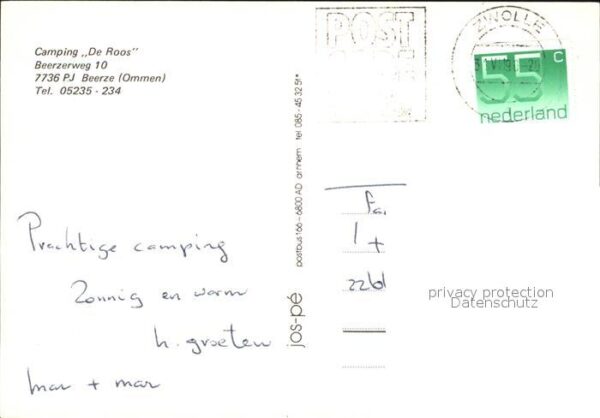 Camping „De Roos"
Beerzerweg 10
7736 PJ Beerze (Ommen)
Tel. 05235 - 234
POST
ZWOLLE
55 c
nederland
jos-pé postbus 166 - 6800 AD arnhem tel. 085 - 45 32 51*
Prachtige camping
Zonnig en warm
h. groeten
mar + mar
fa.
privacy protection
Datenschutz